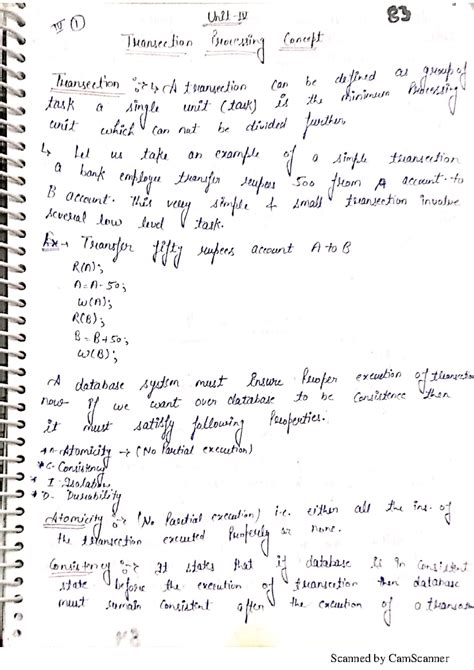 IV ① Unit-IV 83
Transection Processing Concept
Transection :→ ↳ A transection can be defined as group of
task a single unit (task) is the minimum Processing
unit which can not be divided further.
↳ Let us take an example of a simple transection
a bank employee transfer rupees 500 from A account to
B account. This very simple & small transection involve
several low level task.
Ex→ Transfer fifty rupees account A to B
R(A);
A=A-50;
W(A);
R(B);
B=B+50;
W(B);
A database system must Ensure Proper execution of transection
now if we want over database to be Consistence then
it must satisfy following Properties.
* A- Atomicity → (No Partial execution)
* C- Consistency
* I- Isolation
* D- Durability
Atomicity :→ (No Partial execution) i.e. either all the ins. of
the transection executed Properly or none.
Consistency :→ It states that if database is in Consistent
state before the execution of transection then database
must remain Consistent after the execution of a
Scanned by CamScanner